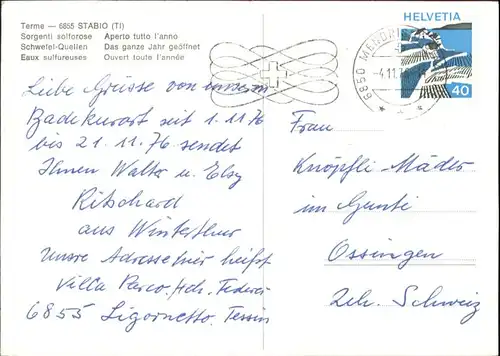 Terme — 6855 STABIO (TI)
Sorgenti solforose Aperto tutto l'anno
Schwefel-Quellen Das ganze Jahr geöffnet
Eaux sulfureuses Ouvert toute l'année
HELVETIA
40
6850 MENDRI
-4.11.7
Liebe Grüsse von unserem
Badekurort seit 1.11.76
bis 21.11.76 sendet
Ihnen Walter u. Elsy
Ritschard
aus Winterthur
Unsre Adresse hier heißt
Villa Parco
6855 Ligornetto. Tessin
Frau
Knöpfli-Mäder
im Gunti
Ossingen
Zch. Schweiz